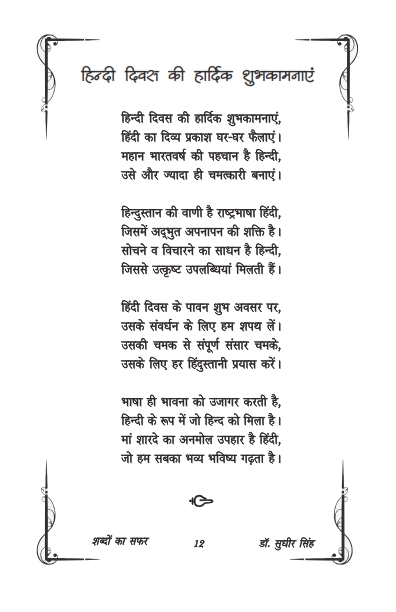 हिन्दी दिवस की हार्दिक शुभकामनाएं
हिन्दी दिवस की हार्दिक शुभकामनाएं,
हिंदी का दिव्य प्रकाश घर-घर फैलाएं।
महान भारतवर्ष की पहचान है हिन्दी,
उसे और ज्यादा ही चमत्कारी बनाएं।
हिन्दुस्तान की वाणी है राष्ट्रभाषा हिंदी,
जिसमें अद्भुत अपनापन की शक्ति है।
सोचने व विचारने का साधन है हिन्दी,
जिससे उत्कृष्ट उपलब्धियां मिलती हैं।
हिंदी दिवस के पावन शुभ अवसर पर,
उसके संवर्धन के लिए हम शपथ लें।
उसकी चमक से संपूर्ण संसार चमके,
उसके लिए हर हिंदुस्तानी प्रयास करें।
भाषा ही भावना को उजागर करती है,
हिन्दी के रूप में जो हिन्द को मिला है।
मां शारदे का अनमोल उपहार है हिंदी,
जो हम सबका भव्य भविष्य गढ़ता है।
शब्दों का सफर 12 डॉ. सुधीर सिंह